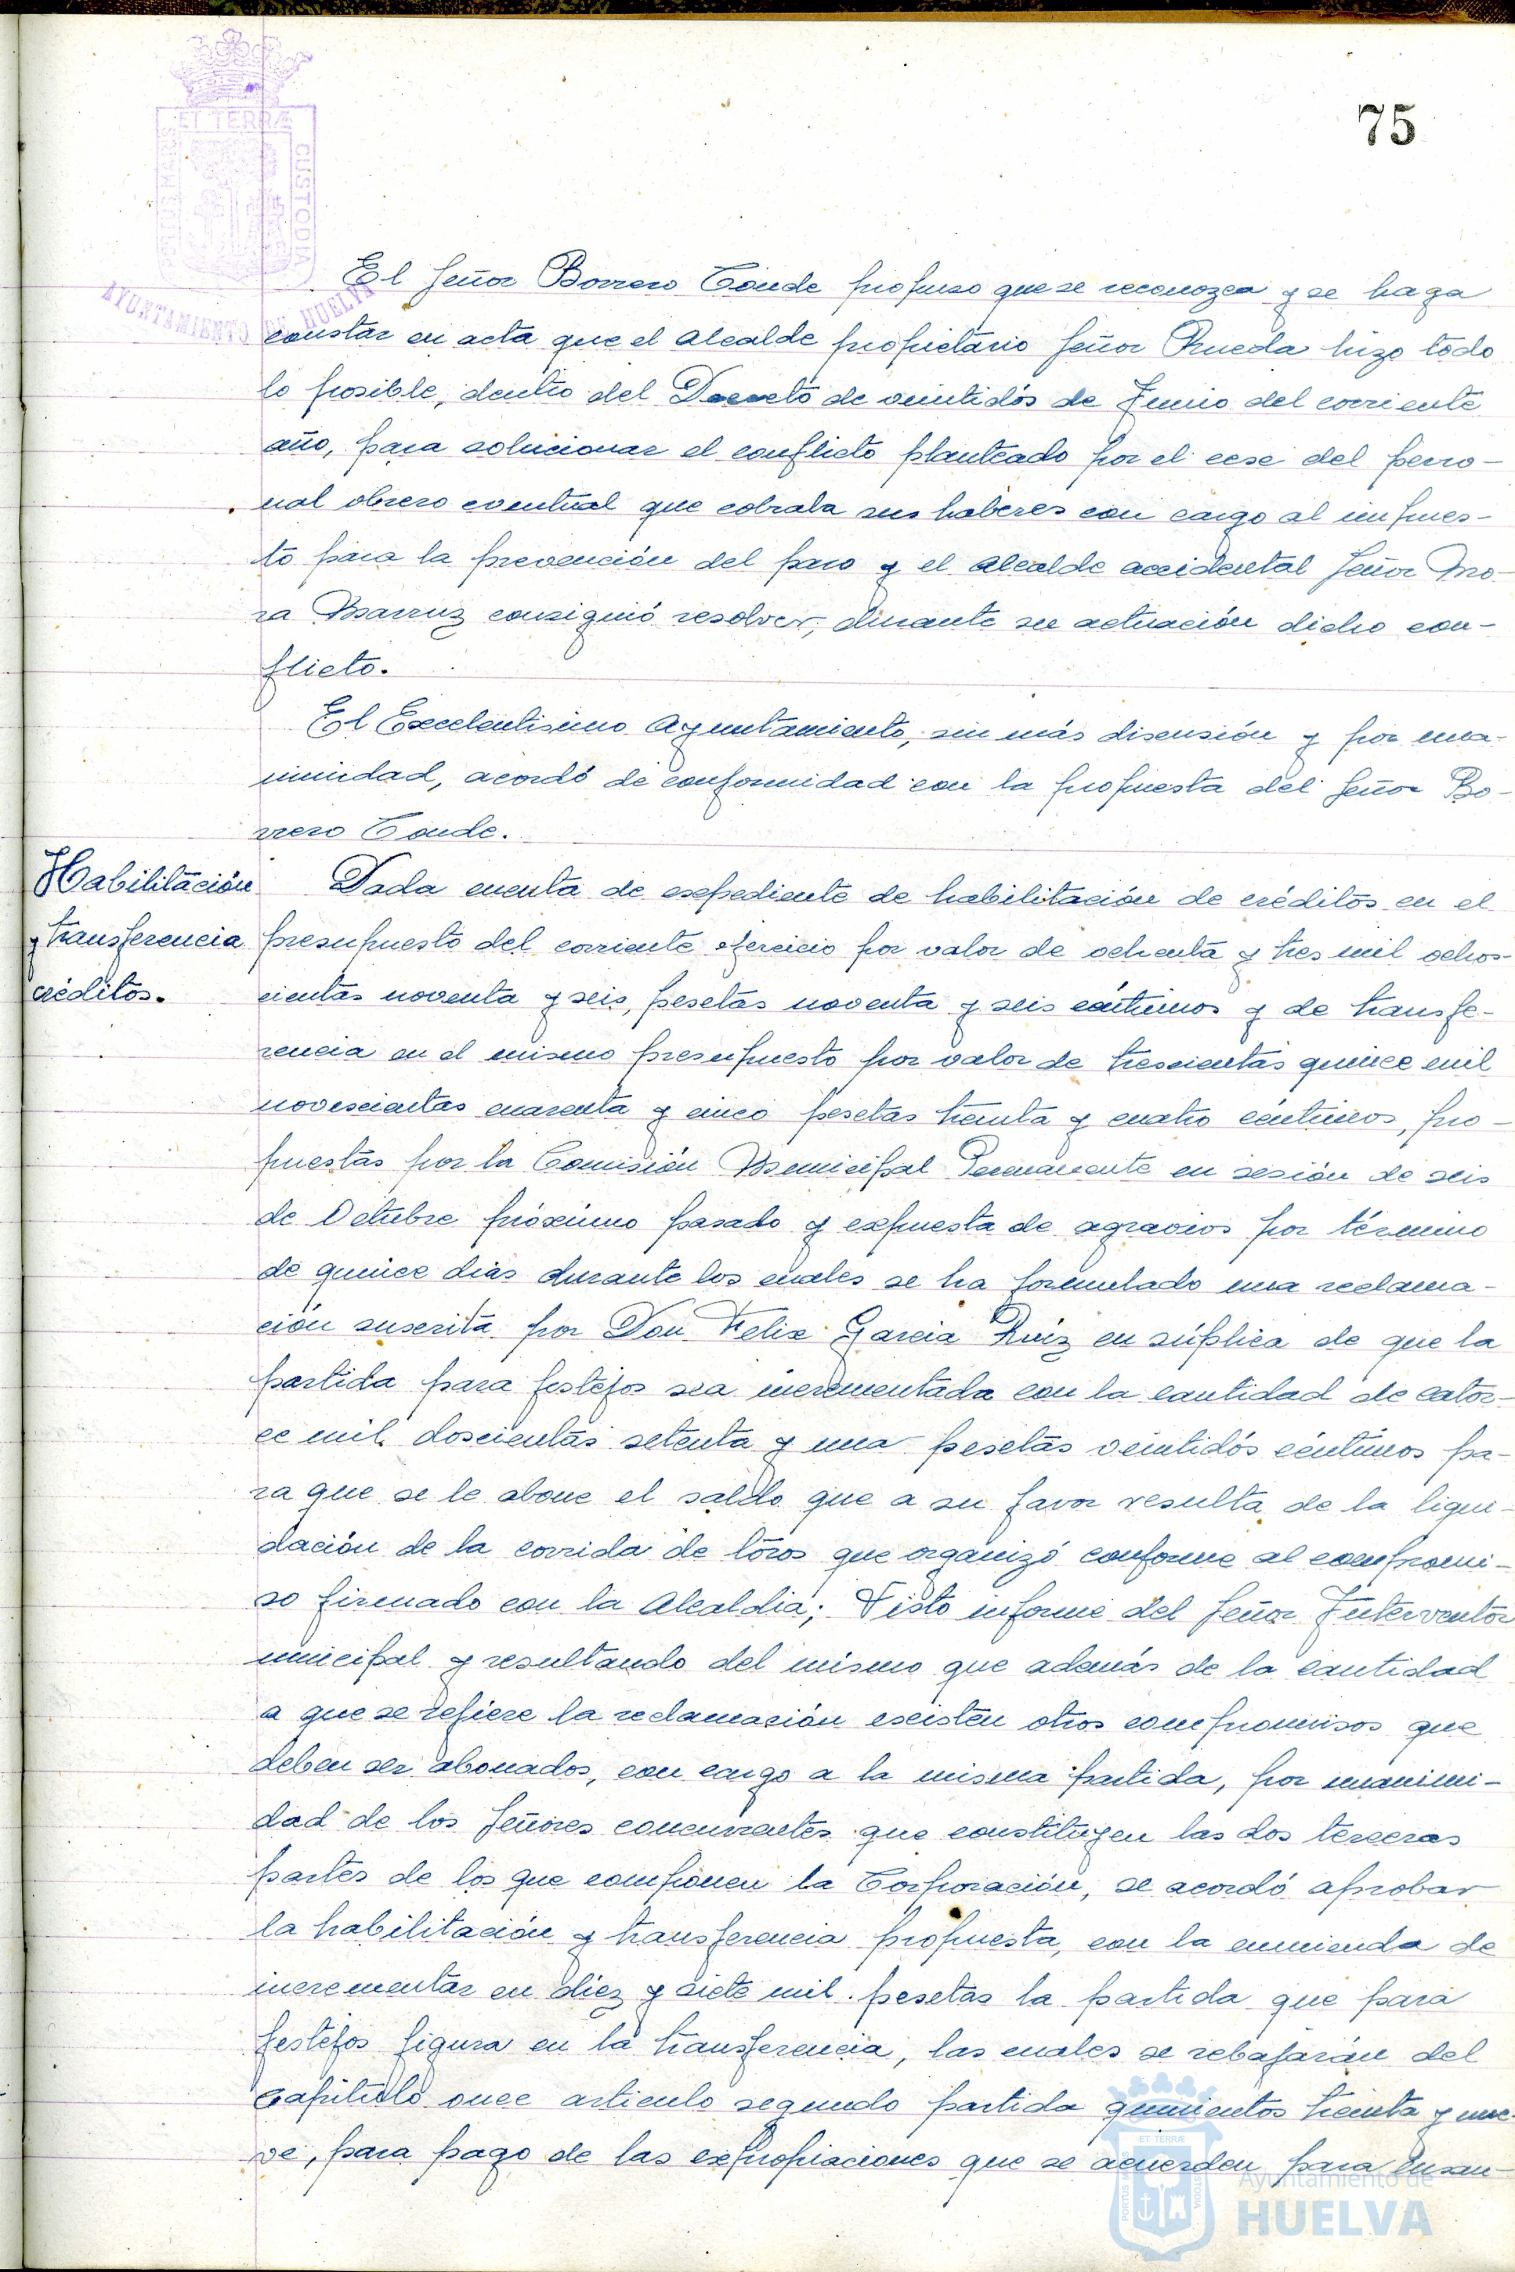 75
ET TERRÆ
CUSTODIA
PORTUS MARIS
AYUNTAMIENTO DE HUELVA
El Señor Borrero Conde propuso que se reconozca y se haga
constar en acta que el Alcalde propietario Señor Rueda hizo todo
lo posible, dentro del Decreto de veintidós de Junio del corriente
año, para solucionar el conflicto planteado por el cese del perso-
nal obrero eventual que cobraba sus haberes con cargo al impues-
to para la prevención del paro y el Alcalde accidental Señor Mo-
ra Marruz consiguió resolver, durante su actuación dicho con-
flicto.
El Excelentisimo Ayuntamiento, sin más discusión y por una-
nimidad, acordó de conformidad con la propuesta del Señor Bo-
rrero Conde.
Habilitación
y transferencia
créditos.
Dada cuenta de expediente de habilitación de créditos en el
presupuesto del corriente ejercicio por valor de ochenta y tres mil ochos-
cientas noventa y seis, pesetas noventa y seis céntimos y de transfe-
rencia en el mismo presupuesto por valor de trescientas quince mil
novescientas cuarenta y cinco pesetas treinta y cuatro céntimos, pro-
puestas por la Comisión Municipal Permanente en sesión de seis
de Octubre próximo pasado y expuesta de agravios por término
de quince dias durante los cuales se ha formulado una reclama-
ción suscrita por Don Felix Garcia Ruiz en súplica de que la
partida para festejos sea incrementada con la cantidad de cator-
ce mil doscientas setenta y una pesetas veintidós céntimos pa-
ra que se le abone el saldo que a su favor resulta de la liqui-
dación de la corrida de toros que organizó conforme al compromi-
so firmado con la Alcaldia; Visto informe del Señor Interventor
municipal y resultando del mismo que además de la cantidad
a que se refiere la reclamación existen otros compromisos que
deben ser abonados, con cargo a la misma partida, por unanimi-
dad de los Señores concurrentes que constituyen las dos terceras
partes de los que componen la Corporación, se acordó aprobar
la habilitación y transferencia propuesta, con la enmienda de
incrementar en diez y siete mil pesetas la partida que para
festejos figura en la transferencia, las cuales se rebajarán del
capitulo once articulo segundo partida quinientos treinta y nue-
ve, para pago de las expropiaciones que se acuerden para ensan-
ET TERRÆ
PORTUS MARIS
CUSTODIA
Ayuntamiento de
HUELVA